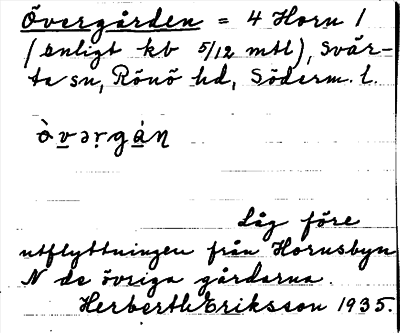 Övergården = 4 Horn 1
(enligt kb 5/12 mtl), Svär-
ta sn, Rönö hd, Söderm. l.
òvərgán
Låg före
utflyttningen från Hornsbyn
N de övriga gårdarna.
Herbert Eriksson 1935.